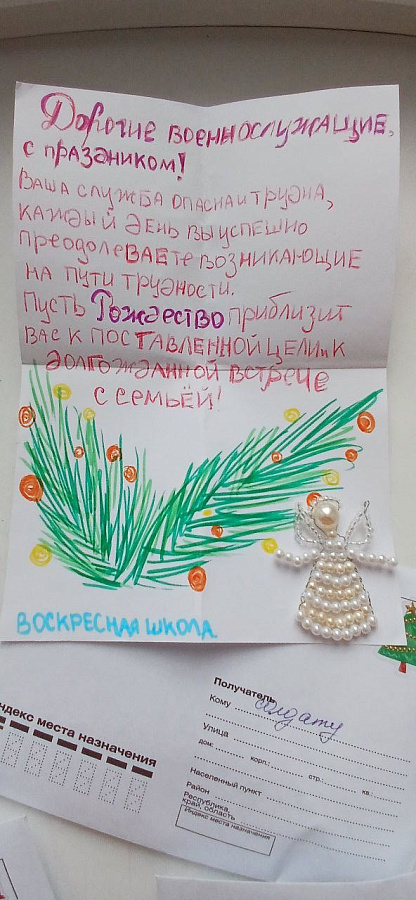 Дорогие военнослужащие,
с праздником!
Ваша служба опасна и трудна,
каждый день вы успешно
преодолеваете возникающие
на пути трудности.
Пусть Рождество приблизит
вас к поставленной цели и к
долгожданной встрече
с семьёй!
ВОСКРЕСНАЯ ШКОЛА.
ндекс места назначения
Получатель
Кому солдату
Улица
дом: корп.: стр.: кв.:
Населенный пункт
Район
Республика,
край, область
Индекс места назначения